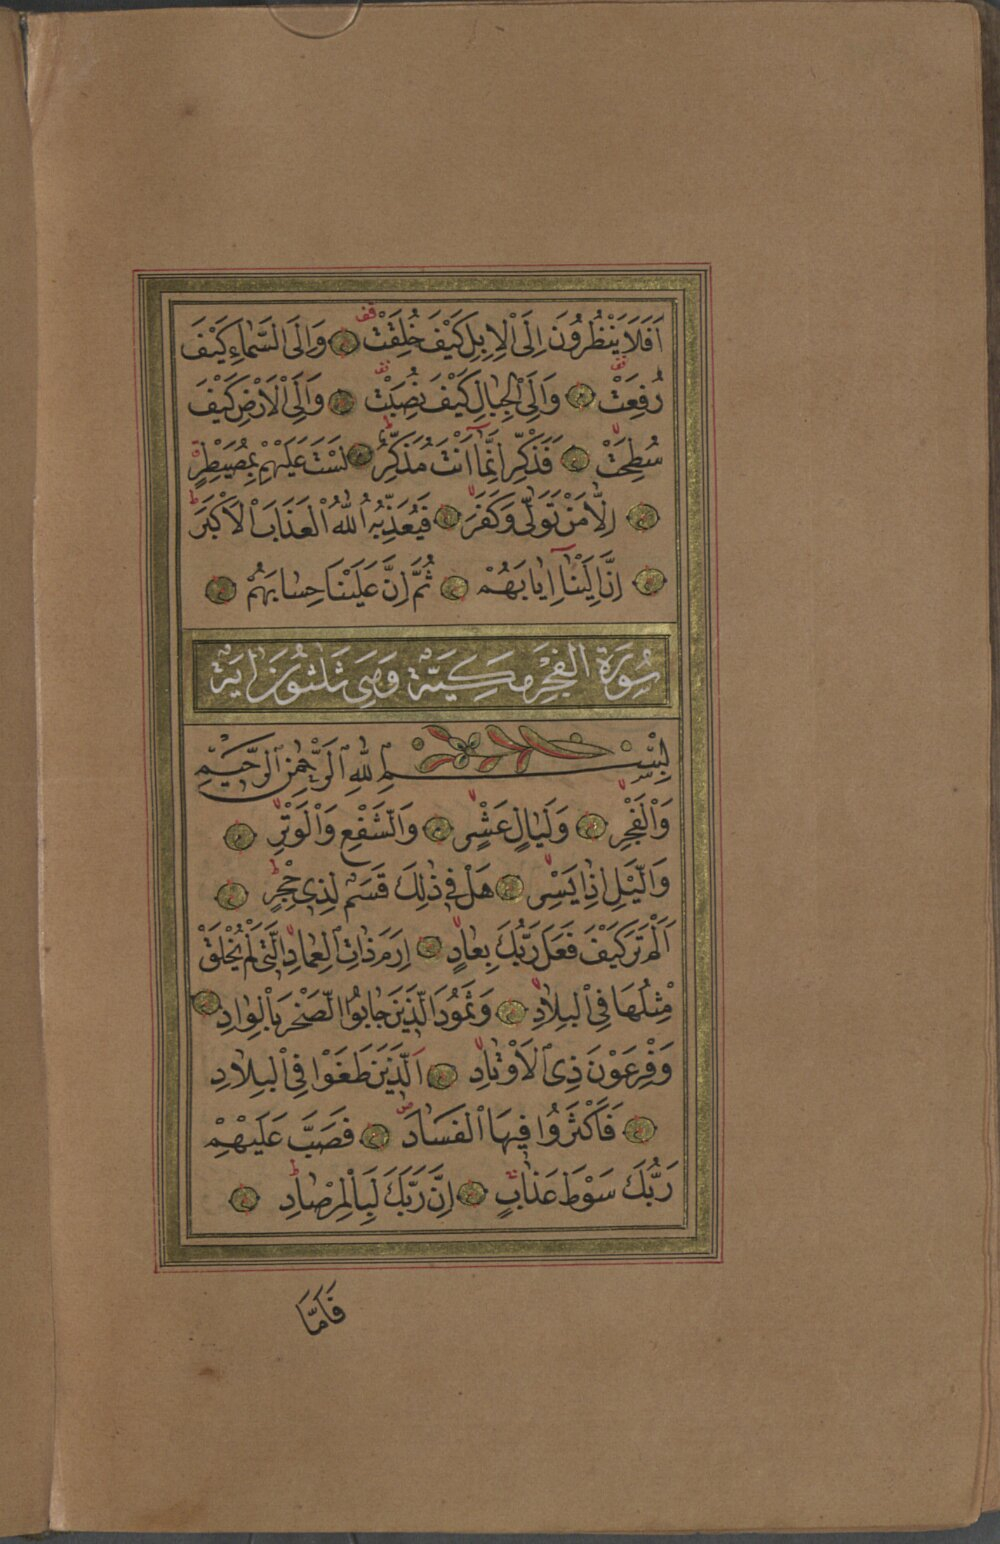 اَفَلَا يَنْظُرُونَ اِلَى الْاِبِلِ كَيْفَ خُلِقَتْ قف وَاِلَى السَّمَاءِ كَيْفَ
رُفِعَتْ قف وَاِلَى الْجِبَالِ كَيْفَ نُصِبَتْ قف وَاِلَى الْاَرْضِ كَيْفَ
سُطِحَتْ فَذَكِّرْ اِنَّمَا اَنْتَ مُذَكِّرٌ ط لَسْتَ عَلَيْهِمْ بِمُصَيْطِرٍ
اِلَّا مَنْ تَوَلّٰى وَكَفَرَ فَيُعَذِّبُهُ اللّٰهُ الْعَذَابَ الْاَكْبَرَ ط
اِنَّ اِلَيْنَا اِيَابَهُمْ ثُمَّ اِنَّ عَلَيْنَا حِسَابَهُمْ
سُورَةُ الْفَجْرِ مَكِّيَّةٌ وَهِيَ ثَلٰثُونَ اٰيَةً
بِسْمِ اللّٰهِ الرَّحْمٰنِ الرَّحِيْمِ
وَالْفَجْرِ وَلَيَالٍ عَشْرٍ وَالشَّفْعِ وَالْوَتْرِ
وَالَّيْلِ اِذَا يَسْرِ هَلْ فِي ذٰلِكَ قَسَمٌ لِذِي حِجْرٍ ط
اَلَمْ تَرَ كَيْفَ فَعَلَ رَبُّكَ بِعَادٍ اِرَمَ ذَاتِ الْعِمَادِ الَّتِي لَمْ يُخْلَقْ
مِثْلُهَا فِي الْبِلَادِ وَثَمُودَ الَّذِينَ جَابُوا الصَّخْرَ بِالْوَادِ
وَفِرْعَوْنَ ذِي الْاَوْتَادِ اَلَّذِينَ طَغَوْا فِي الْبِلَادِ
فَاَكْثَرُوا فِيهَا الْفَسَادَ ص فَصَبَّ عَلَيْهِمْ
رَبُّكَ سَوْطَ عَذَابٍ اِنَّ رَبَّكَ لَبِالْمِرْصَادِ ط
فَاَمَّا